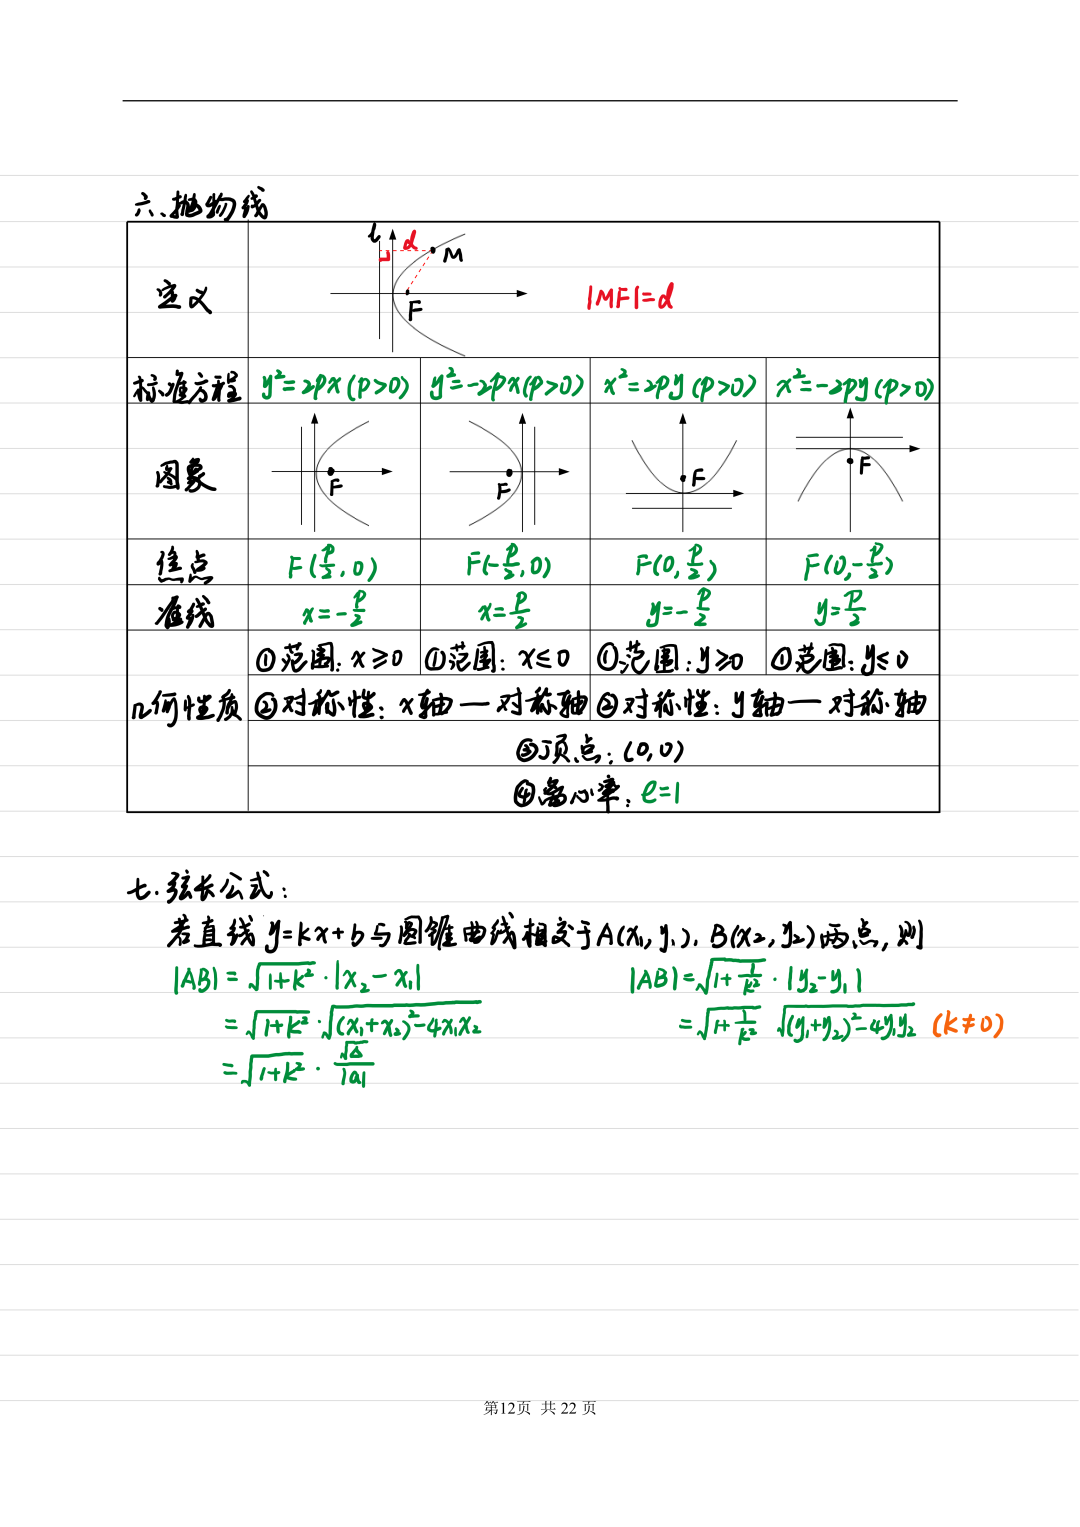 六、抛物线
定义 l d M F |MF|=d
标准方程 y²=2px(p>0) y²=-2px(p>0) x²=2py(p>0) x²=-2py(p>0)
图象 F F F F
焦点 F(p/2,0) F(-p/2,0) F(0,p/2) F(0,-p/2)
准线 x=-p/2 x=p/2 y=-p/2 y=p/2
①范围:x≥0 ①范围:x≤0 ①范围:y≥0 ①范围:y≤0
几何性质 ②对称性:x轴—对称轴 ②对称性:y轴—对称轴
③顶点:(0,0)
④离心率:e=1
七.弦长公式:
若直线y=kx+b与圆锥曲线相交于A(x₁,y₁),B(x₂,y₂)两点,则
|AB|=√(1+k²)·|x₂-x₁| |AB|=√(1+1/k²)·|y₂-y₁|
=√(1+k²)·√((x₁+x₂)²-4x₁x₂) =√(1+1/k²) √((y₁+y₂)²-4y₁y₂) (k≠0)
=√(1+k²)·√Δ/|a|
第12页 共 22 页